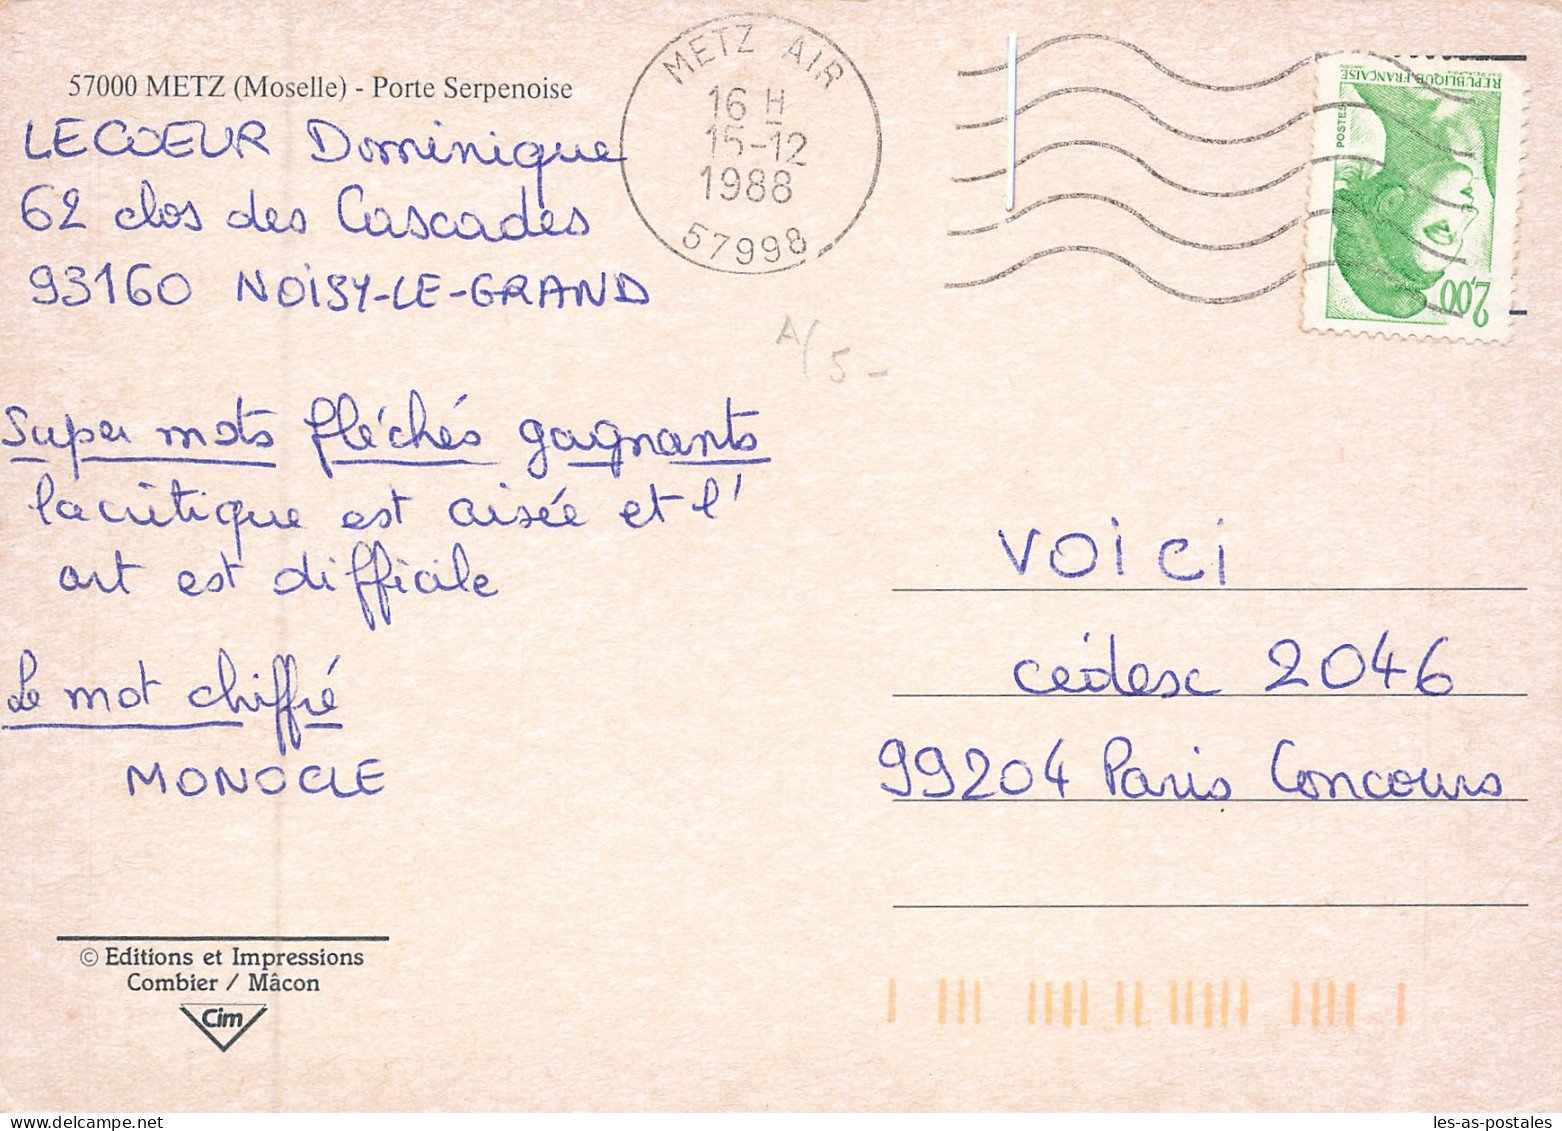 57000 METZ (Moselle) - Porte Serpenoise
LECOEUR Dominique
62 clos des Cascades
93160 NOISY-LE-GRAND
METZ AIR
16 H
15-12
1988
57998
RÉPUBLIQUE FRANÇAISE
POSTES
2,00
A/5-
Super mots fléchés gagnants
la critique est aisée et l'
art est difficile
Le mot chiffré
MONOCLE
VOICI
cédex 2046
99204 Paris Concours
© Editions et Impressions
Combier / Mâcon
Cim
les-as-postales